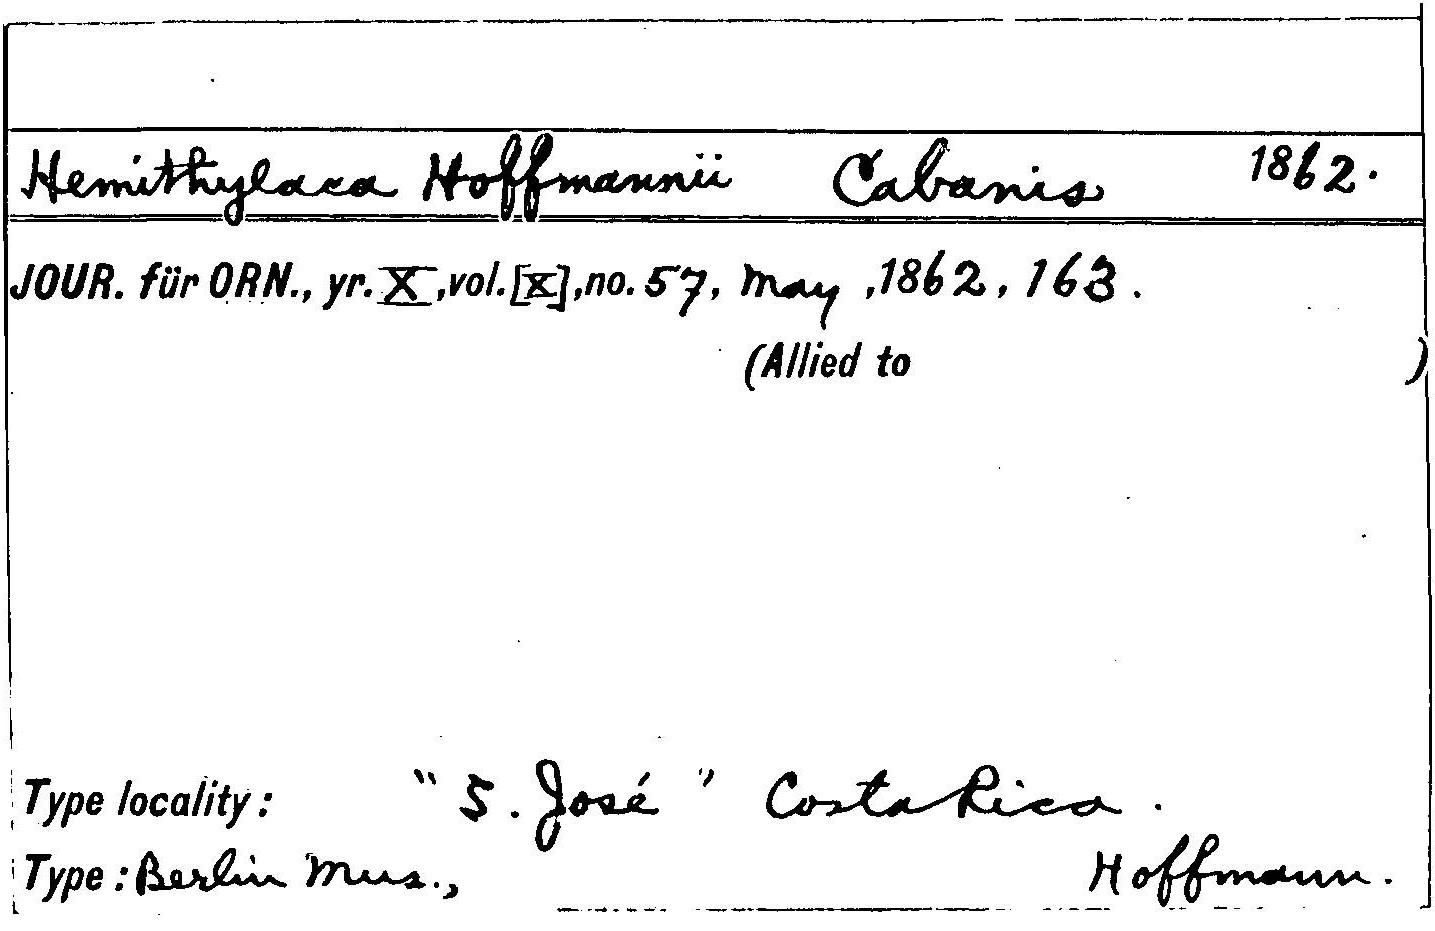 Hemithylaca Hoffmannii Cabanis 1862.
JOUR. für ORN., yr. X, vol. [X], no. 57, May, 1862, 163.
(Allied to )
Type locality: "S. José" Costa Rica.
Type: Berlin Mus., Hoffmann.